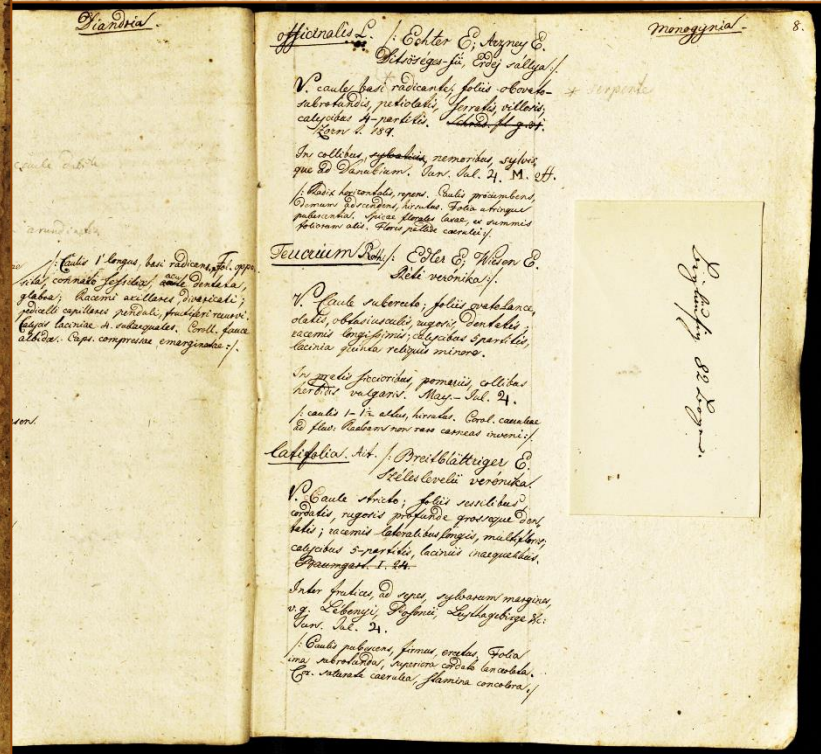 Diandria.
caule
/: Caulis 1' longus, basi radicans, Fol. oppo-
sita, connato sessilia, acute dentata,
glabra; Racemi axillares, divaricati;
pedicelli capillares penduli, fructiferi recurvi.
Calycis laciniae 4. subaequales. Coroll. fauce
albida. Caps. compressae emarginatae :/.
Monogynia.
8.
officinalis L. /: Echter E; Arzney E.
Ditsöséges-fü, Erdej sallya :/
V. caule basi radicante, foliis obovato-
subrotundis, petiolatis, serratis, villosis;
calycibus 4-partitis. Schrad. fl. g.
Zorn t. 189.
+ serpente
In collibus, sylvaticis, nemoribus, sylvis,
que ad Danubium. Jun. Jul. 4. M.
/: Radix horizontalis, repens. Caulis procumbens,
demum adscendens, hirsutus. Folia utrinque
pubescentia. Spicae florales laxae, ex summis
foliorum alis. Flores pallide caerulei :/
Teucrium Roth. /: Edler E; Wiesen E.
Réti verónika :/.
V. Caule suberecto; foliis ovato lance-
olatis, obtusiusculis, rugosis, dentatis;
racemis longissimis; calycibus 5partitis,
lacinia quinta reliquis minore.
In pratis siccioribus, pomariis, collibus
herbidis vulgaris. May.- Jul. 4.
/: caulis 1-1½ altus, hirsutus. Corol. caeruleae
ad fluv. Raabams non raro carneas inveni :/.
latifolia. Ait. /: Breitblättriger E.
Széleslevelü verónika
V. Caule stricto; foliis sessilibus,
cordatis, rugosis profunde grosseque den-
tatis; racemis lateralibus longis, multifloris;
calycibus 5-partitis, laciniis inaequalibus.
Baumgart. I. 24.
Inter frutices, ad sepes, sylvarum margines,
v. g. Lébenyi, Posonii, Leythagebirge &c:
Jun. Jul. 4.
/: Caulis pubescens, firmus, erectus, Folia
ima subrotunda, superiora cordato lanceolata.
Cor. saturate caerulea, stamina concolora :/